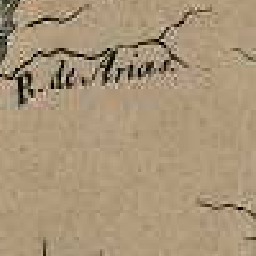 R. de Arias.